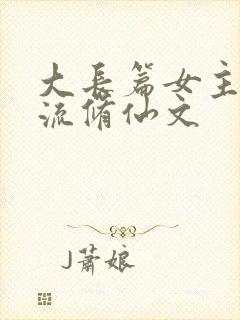 大长篇女主
流脩仙文
J蕭娘